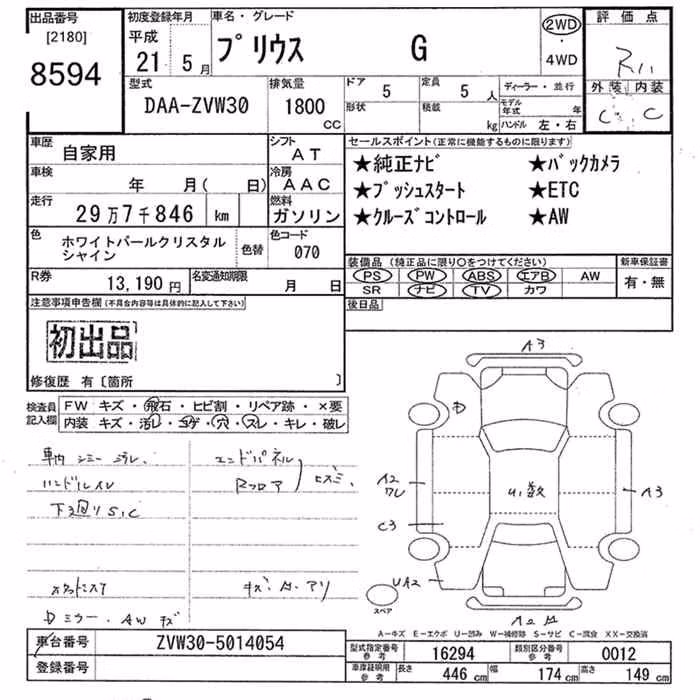 出品番号
[2180]
8594
初度登録年月
平成
21 年 5 月
車名・グレード
プリウス G
2WD
・
4WD
評価点
R11
外装 内装
C C
型式
DAA-ZVW30
排気量
1800
cc
ドア 5
定員 5 人
形状
積載 kg
ディーラー・並行
モデル年式 年
ハンドル 左・右
車歴
自家用
シフト
AT
車検
年 月( 日)
冷房
AAC
走行
29万7千846 km
燃料
ガソリン
色
ホワイトパールクリスタル
シャイン
色替
色コード
070
R券
13,190 円
名変通知期限
月 日
セールスポイント(正常に機能するものに限ります)
★純正ナビ ★バックカメラ
★プッシュスタート ★ETC
★クルーズコントロール ★AW
装備品 (純正品に限り○をつけてください)
PS PW ABS エアB AW
SR ナビ TV カワ
新車保証書
有・無
後日品
注意事項申告欄(不具合内容等は具体的に記入して下さい)
初出品
修復歴 有〔箇所 〕
検査員
記入欄
FW キズ・飛石・ヒビ割・リペア跡・×要
内装 キズ・汚レ・コゲ・穴・スレ・キレ・破レ
車内シミー
ハンドルスレ
下廻りS,C
エンドパネル
Rフロア
Dミラー・AWキズ
キズ・A・アリ
A3
D
A2
C3
A3
UA2
スペア
A-キズ E-エクボ U-凹み W-補修跡 S-サビ C-腐食 XX-交換済
車台番号
ZVW30-5014054
登録番号
型式指定番号
参考
16294
類別区分番号
参考
0012
車庫証明用
参考
長さ 446 cm
幅 174 cm
高さ 149 cm